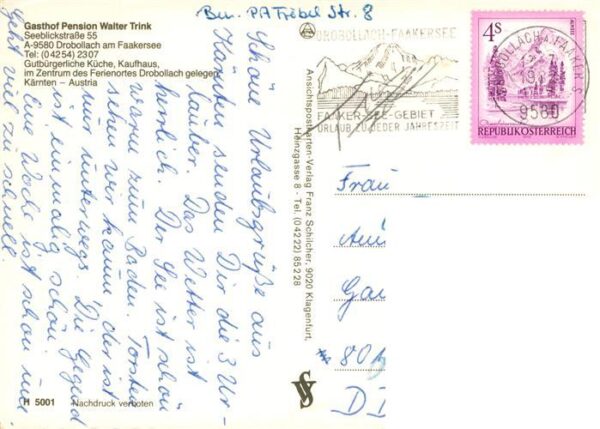 Gasthof Pension Walter Trink
Seeblickstraße 55
A-9580 Drobollach am Faakersee
Tel: (04254) 2307
Gutbürgerliche Küche, Kaufhaus,
im Zentrum des Ferienortes Drobollach gelegen
Kärnten – Austria
Str. 8
DROBOLLACH-FAAKERSEE
FAAKER-SEE-GEBIET
URLAUB ZU JEDER JAHRESZEIT
DROBOLLACH A. FAAKER S.
9580
4S
REPUBLIK ÖSTERREICH
Schöne Urlaubsgrüße aus
Kärnten senden Dir die 3 Ur-
lauber. Das Wetter ist
herrlich. Der See ist schön
warm zum Baden. Torsten
haben wir kaum, der ist
nur unterwegs. Die Gegend
ist einmalig schön.
Eine Woche ist schon rum.
Geht viel zu schnell.
Ansichtspostkarten-Verlag Franz Schilcher, 9020 Klagenfurt,
Heinzgasse 8 - Tel. (04222) 85228
Frau
80
D
H 5001 Nachdruck verboten